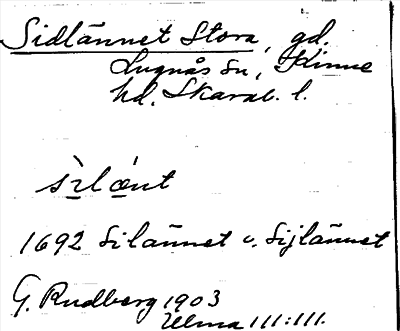 Sidlännet Stora, gd.
Lugnås sn, Kinne
hd. Skarab. l.
sìlǽnt
1692 Silännet o. Sijlännet
G. Rudberg 1903
Ulma 111:111.